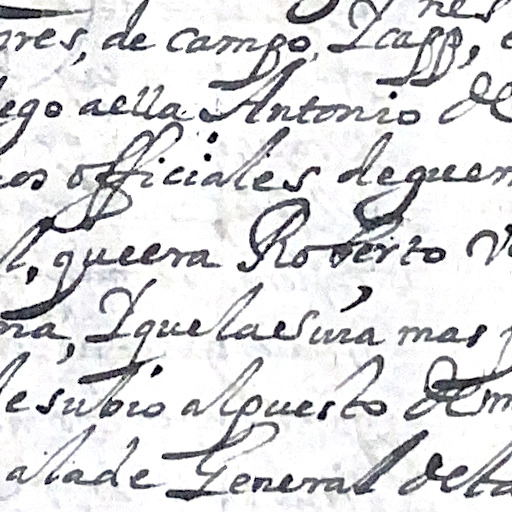 nes
ores, de campo, Y capp, e
lego a ella Antonio de
cos officiales de guerr
l, que era Roberto V
na, Y que la esura mas p
le subio al puesto de m
a la de General de la